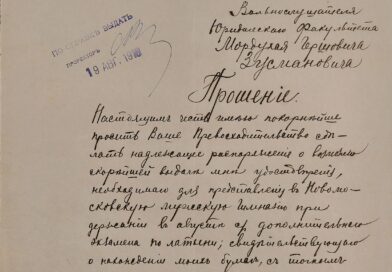 Вольнослушателя
Юридическаго Факультета
Мордухая Гершовича
Зусмановича
ПО СПРАВКѢ ВЫДАТЬ
ПРОРЕКТОРЪ
19 АВГ. 1910
Прошеніе.
Настоящимъ честь имѣю покорнѣйше
просить Ваше Превосходительство сдѣ-
лать надлежащее распоряженіе о возможно
скорѣйшей выдачѣ мнѣ удостовѣренія,
необходимаго для представленія въ Новомо-
сковскую мужскую гимназію при
держаніи въ августѣ с/г дополнительнаго
экзамена по латыни; свидѣтельствующаго
о нахожденіи моихъ бумагъ, съ